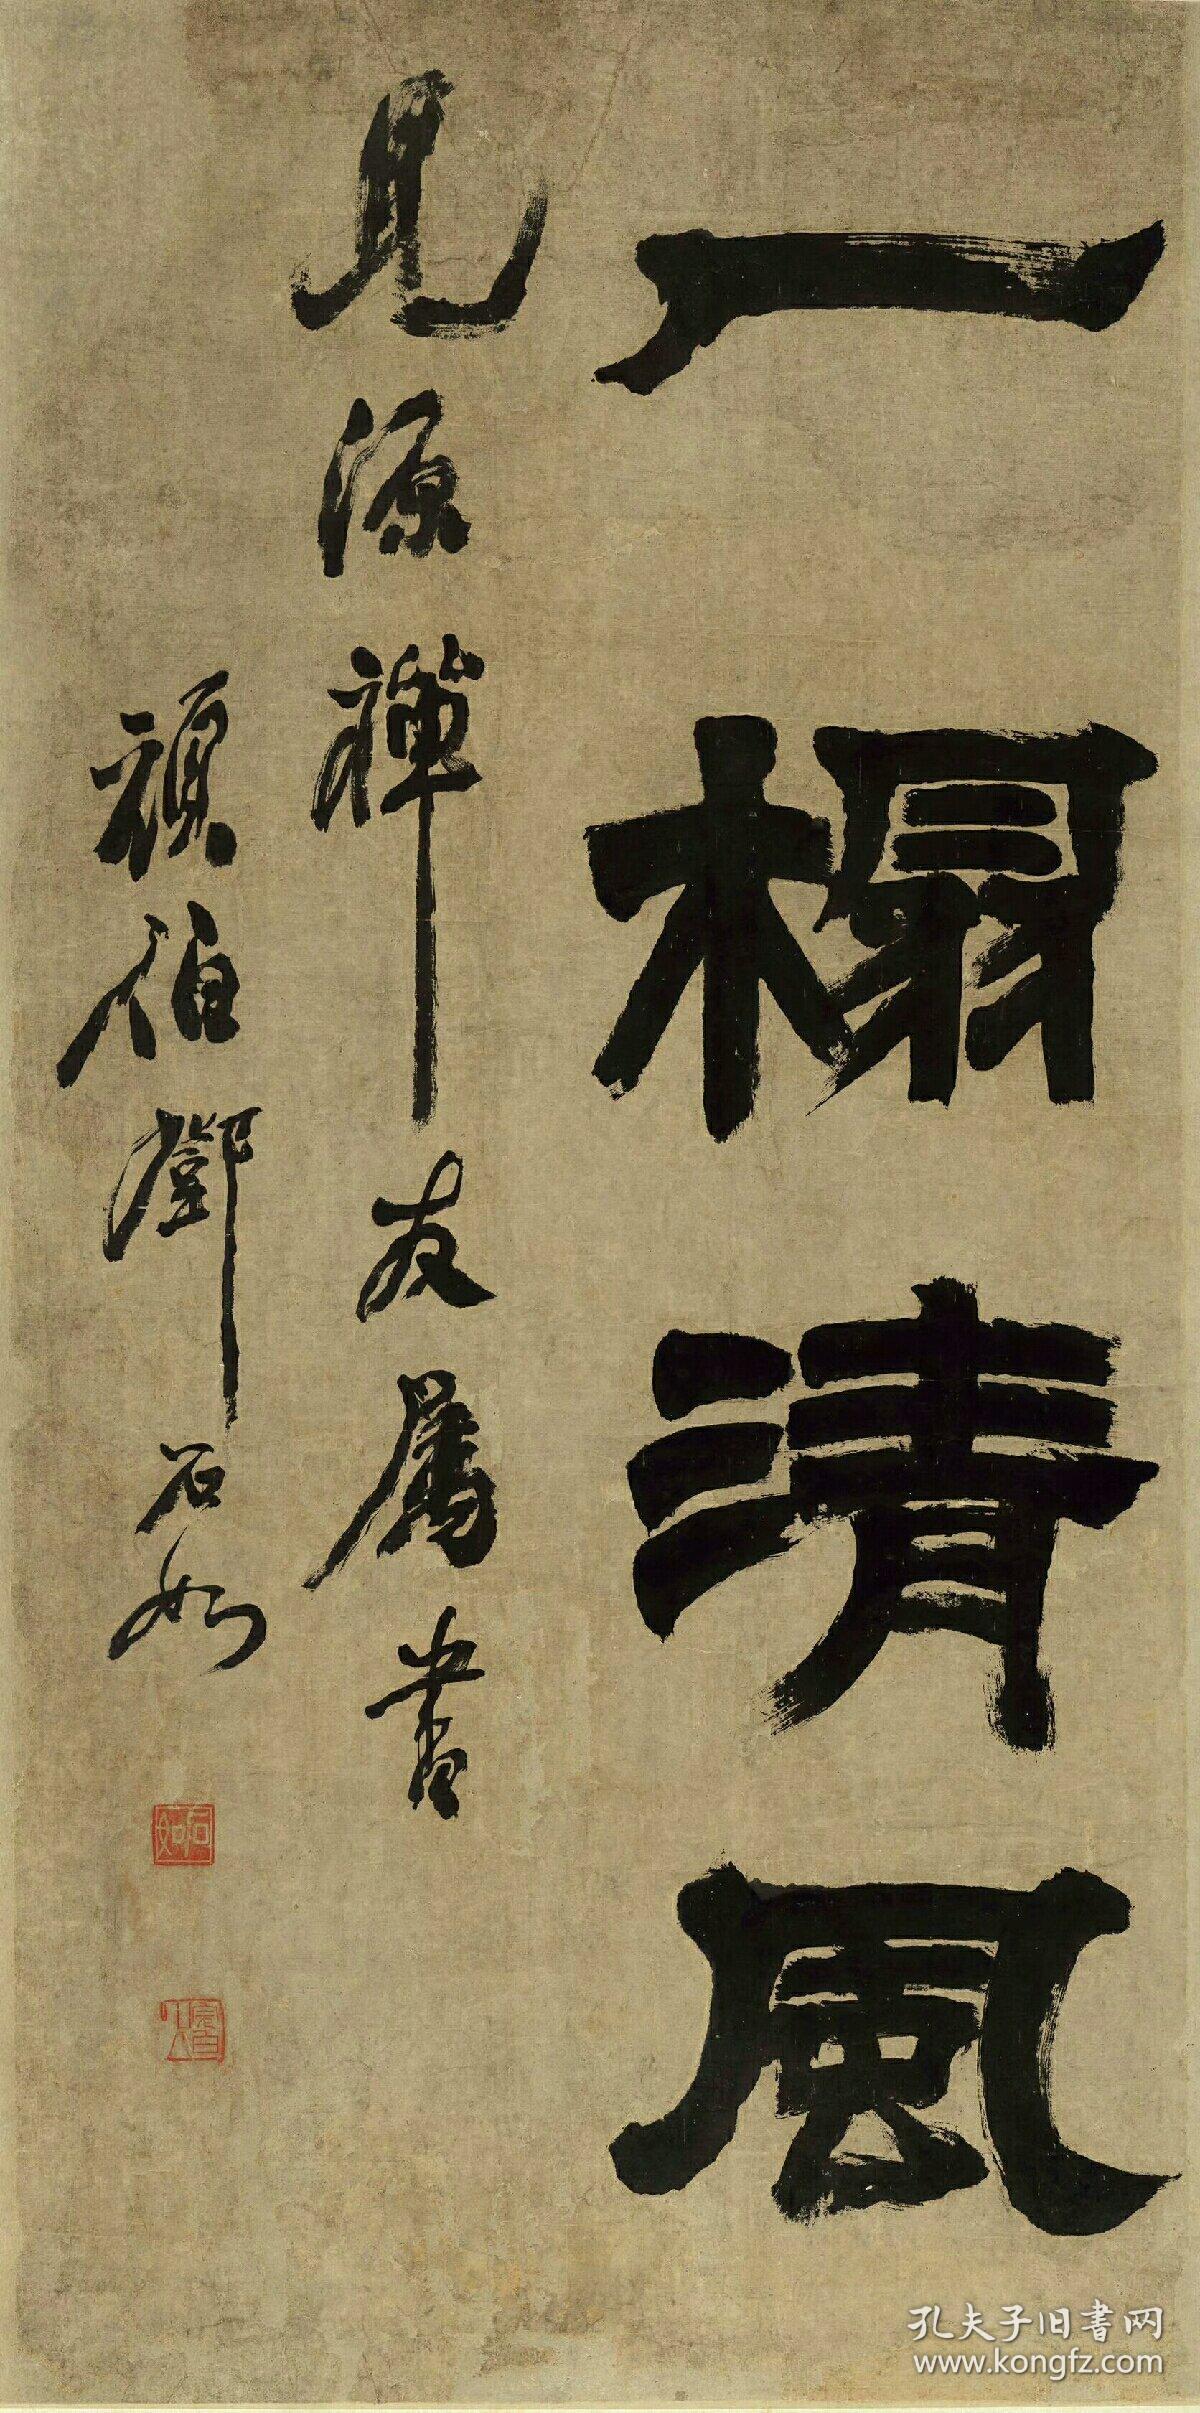 一榻清风
見源禅友属書
頑伯鄧石如
石如
孔夫子旧書网
www.kongfz.com